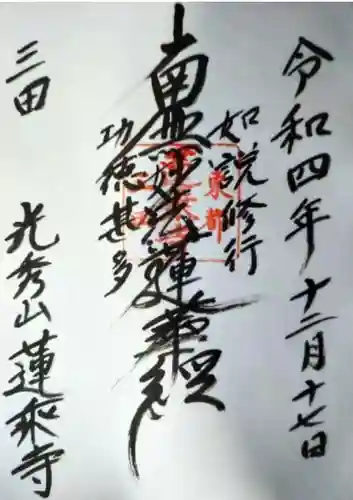 令和四年十二月十七日
如説修行
南無妙法蓮華経
功徳甚多
三田
光秀山蓮乗寺